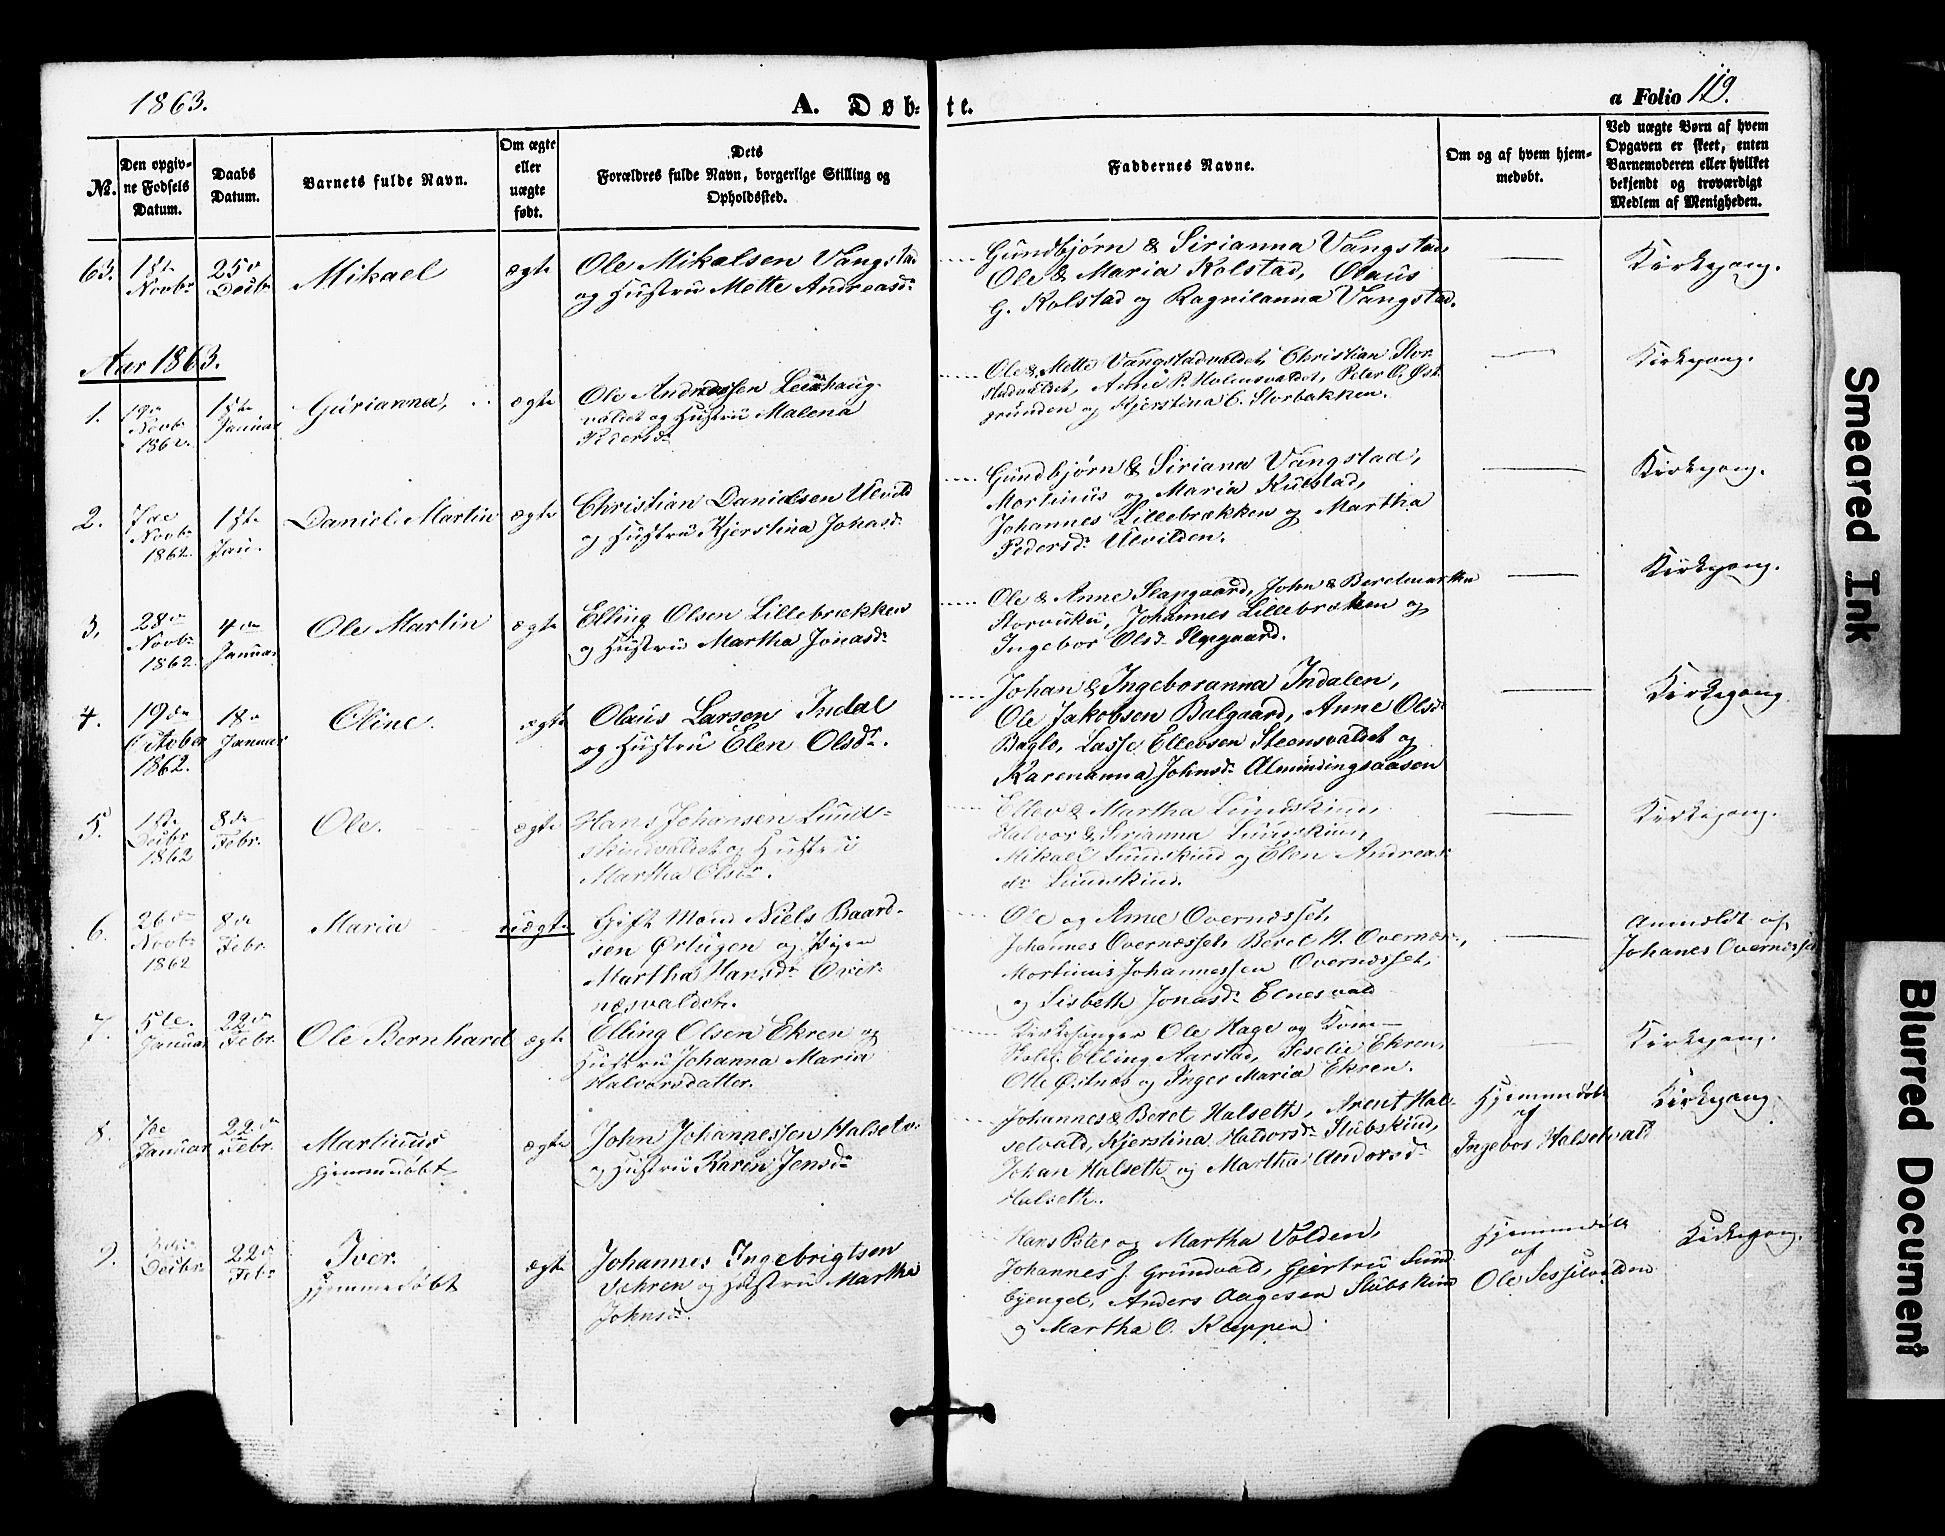 1863.
A. Døb-
te.
a Folio 119.
No.
Den opgiv-
ne Fødsels
Datum.
Daabs
Datum.
Barnets fulde Navn.
Om ægte
eller
uægte
født.
Dets
Forældres fulde Navn, borgerlige Stilling og
Opholdssted.
Faddernes Navne.
Om og af hvem hjem-
medøbt.
Ved uægte Børn af hvem
Opgaven er skeet, enten
Barnemoderen eller hvilket
bekjendt og troværdigt
Medlem af Menigheden.
63.
1ste
Novbr
25de
Decbr
Mikael
ægte
Ole Mikalsen Vangstad
og Hustru Mette Andreasdr
Gundbjørn & Sirianna Vangstad
Ole & Maria Kolstad, Olaus
G. Kolstad og Ragnilanna Vangstad.
Kirkegang.
Aar 1863.
1.
Novb
1862.
1ste
Januar
Gurianna,
ægte
Ole Andreassen
valdet og Hustru Malena
Pedersdr
Ole & Mette Vangstadvaldet, Christian Stor-
Anne P. Holmsvaldet, Peter O. Øst-
grunden og Kjerstina C. Storbakken.
Kirkegang.
2.
7de
Novbr
1862
1ste
Jan.
Daniel Martin
ægte
Christian Danielsen Ulvild
og Hustru Kjerstina Jonasdr
Gundbjørn & Siriana Vangstad,
Martinus og Maria Kulstad,
Johannes Lillebrækken og Martha
Pedersdr Ulvilden.
Kirkegang.
3.
28de
Novbr
1862
4de
Januar
Ole Martin
ægte
Elling Olsen Lillebrækken
og Hustru Martha Jonasdr
Ole & Anne Slapgaard, John & Beretmartha
Storvuku, Johannes Lillebrækken og
Ingebor Olsdr Slapgaard.
Kirkegang.
4.
19de
October
1862.
18de
Januar
Oline.
ægte
Olaus Larsen Indal
og Hustru Elen Olsdr.
Johan & Ingeboranna Indalen,
Ole Jakobsen Balgaard, Anne Olsdr
Baglo, Lasse Ellevsen Steensvaldet og
Karenanna Johnsdr Almindingsaasen
Kirkegang
5.
1ste
Decbr
1862
8de
Febr.
Ole.
ægte
Hans Johansen Lund-
skindvaldet og Hustru
Martha Olsdr.
Ellev & Martha Lundskind,
Halvor & Sirianna Lundskind,
Mikael Lundskind og Elen Andreas-
dr Lundskind.
Kirkegang.
6.
26de
Novbr
1862
8de
Febr.
Maria
uægte
Gift Mand Niels Baard-
sen Ørtugen og Pigen
Martha Hansdr Over-
næsvaldet.
Ole og Anne Overnæsset,
Johannes Overnæsset, Beret H. Overnæs,
Martinus Johannessen Overnæsset,
og Lisbeth Jonasdr Elnesvald
Anmeldt af
Johanes Overnæsset
7.
5te
Januar
22de
Febr.
Ole Bernhard
ægte
Elling Olsen Ekren og
Hustru Johanna Maria
Halvorsdatter.
Kirkesanger Ole Hage og Kone
Elling Aarstad, Seselie Ekren,
Olle Østnes og Inger Maria Ekren.
Kirkegang.
8.
Januar
22de
Febr.
Martinus
Hjemmedøbt
ægte
John Johannessen Halsetv.
og Hustru Karen Jensdr
Johannes & Beret Halseth, Arent Hal-
setvald, Kjerstina Halvorsdr Stubskind,
Johan Halseth og Martha Andorsdr
Halseth.
Hjemmedøbt
af
Ingebor Halsetvald
Kirkegang.
9.
Decbr
22de
Febr
Iver.
Hjemmedøbt
ægte
Johannes Ingebrigtsen
Vehren og Hustru Martha
Johnsdr.
Hans Peter og Martha Volden,
Johannes J. Grundvad, Gjertru Sund-
Anders Aagesen Stubskind
og Martha O. Kleppen.
Hjemmedøbt
af
Ole Sessilvolden
Kirkegang.
Smeared Ink
Blurred Document